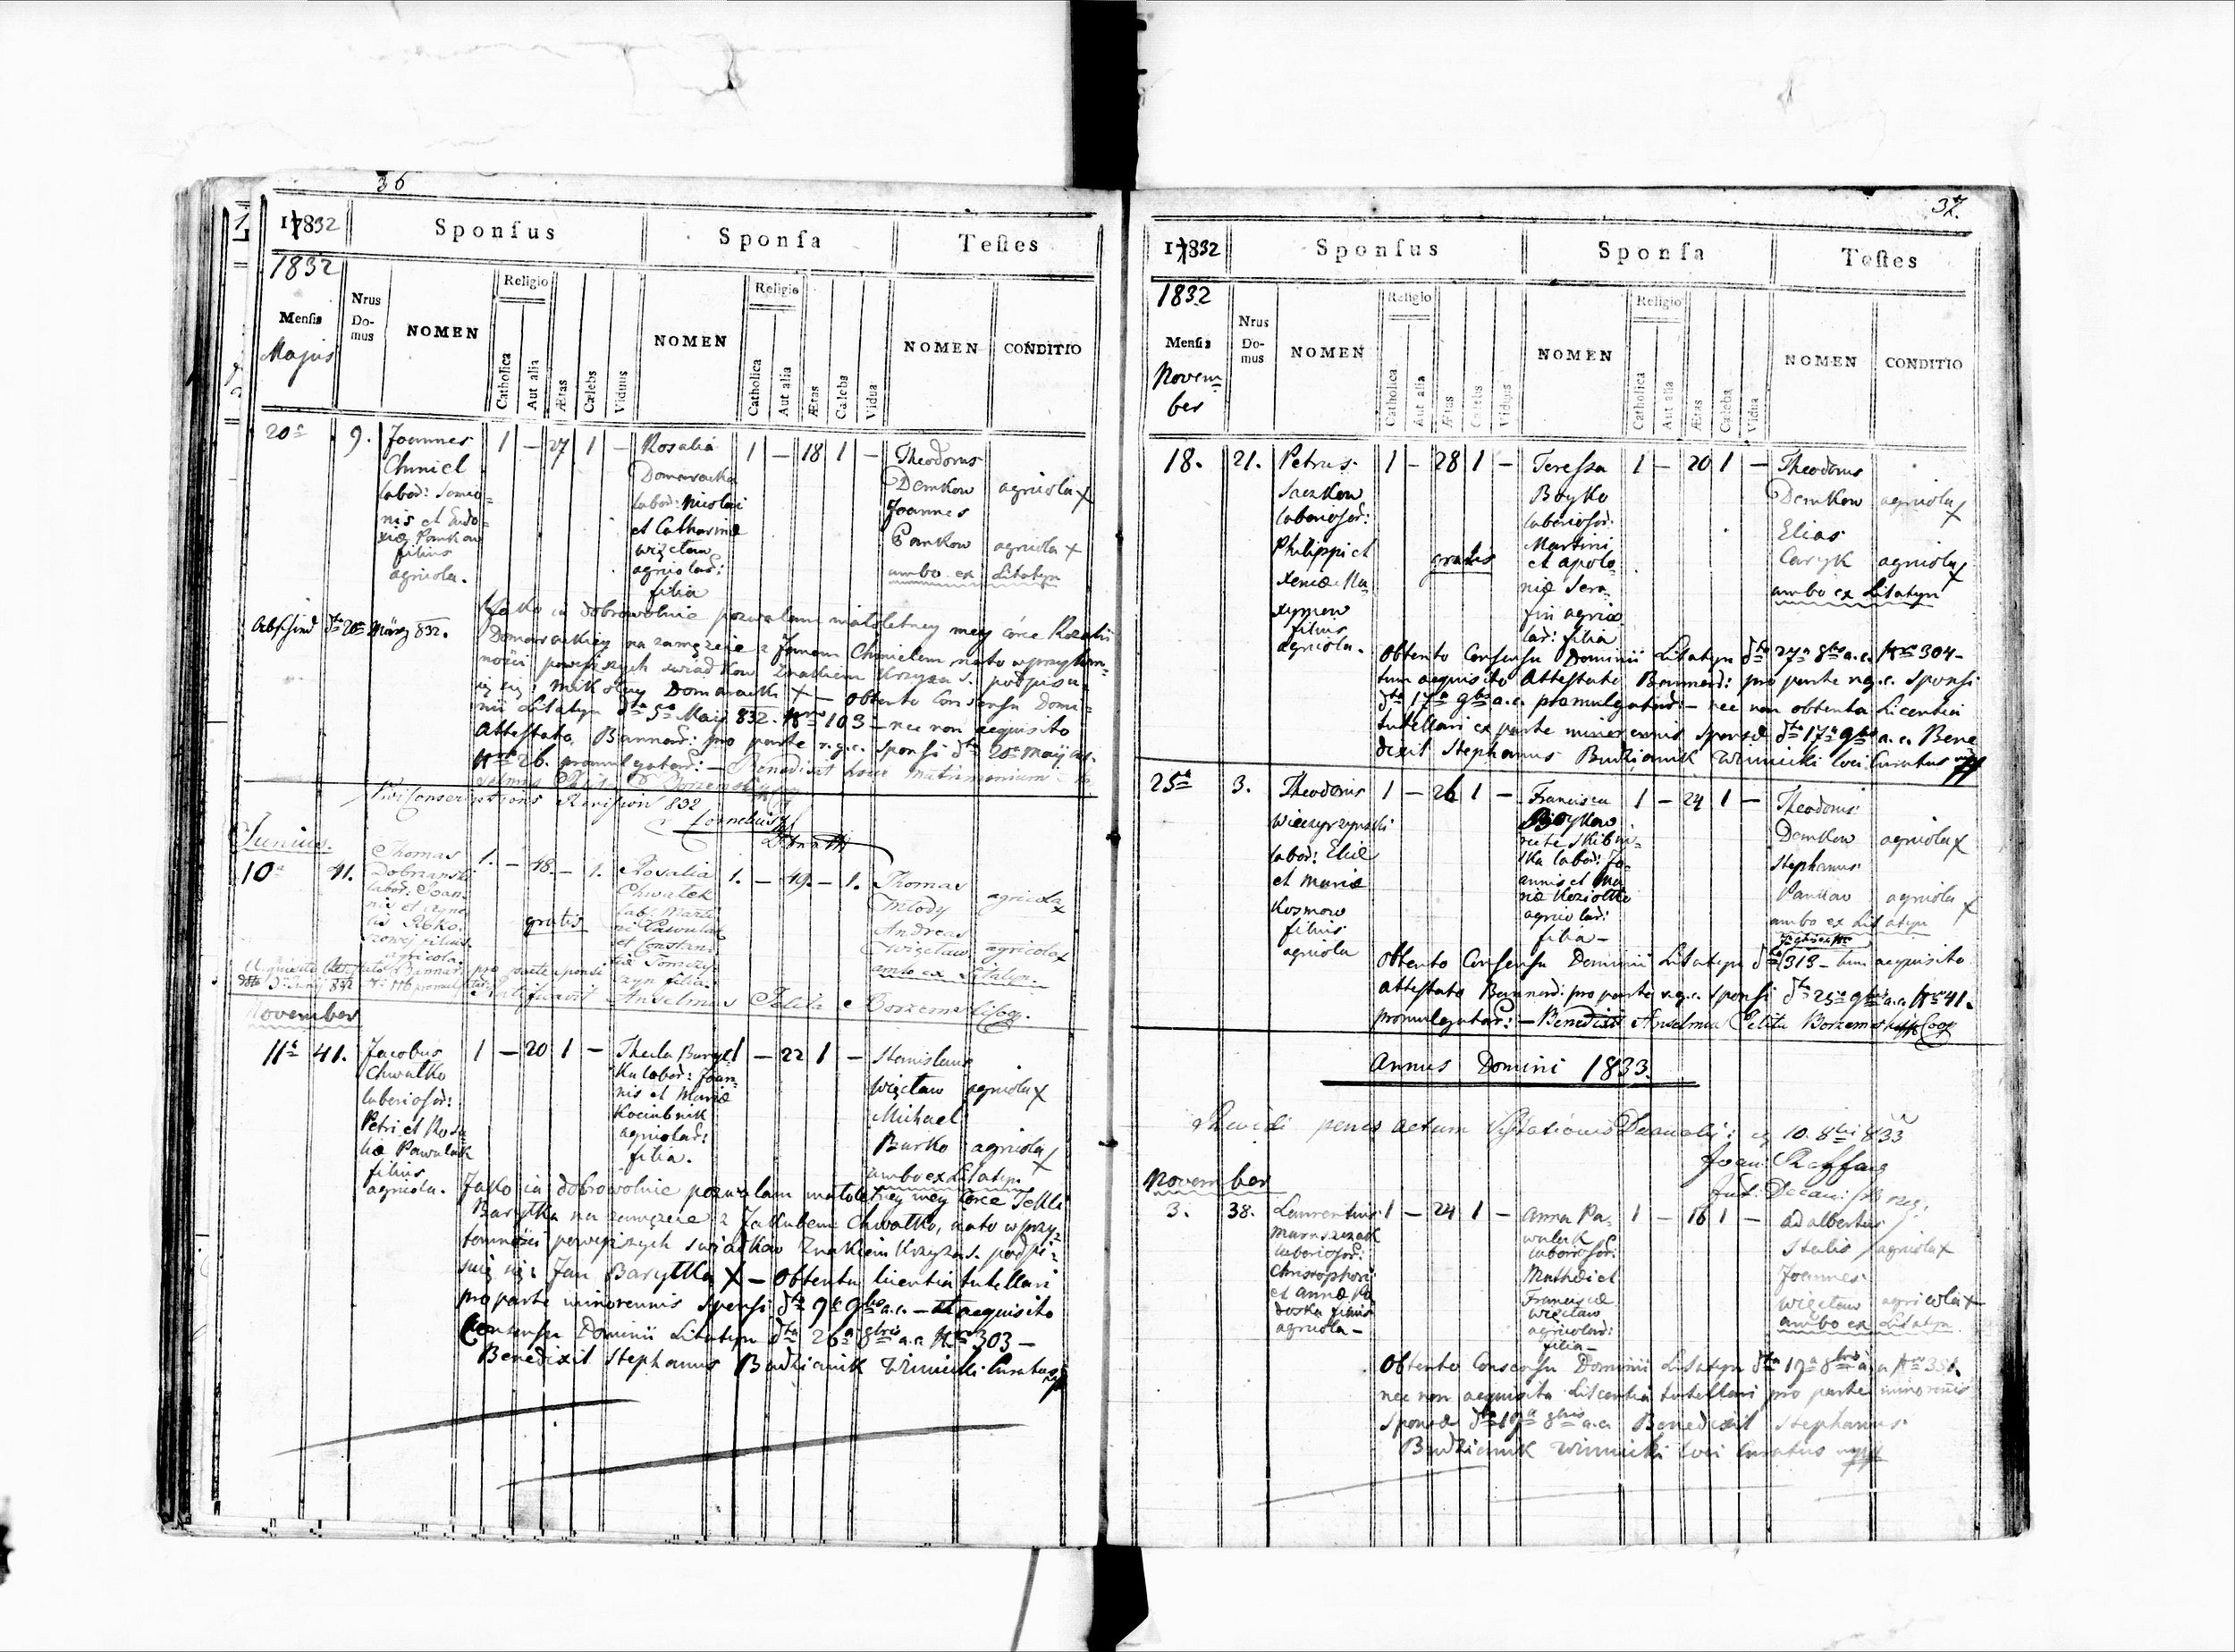 36
17832
Sponsus
Sponsa
Testes
1832
Mensis
Majus
Nrus Domus
NOMEN
Religio
Catholica
Aut alia
Ætas
Cælebs
Viduus
NOMEN
Religio
Catholica
Aut alia
Ætas
Cælebs
Vidua
NOMEN
CONDITIO
20a
9.
Joannes
Chmiel
labor:
nis et Eudo=
xiæ Pankow
filius
agricola.
1 — 27 1 —
Rosalia
Domaracka
labor: Nicolai
et Catharinæ
Więcław
agricolar:
filia
1 — 18 1 —
Theodorus
Demkow agricola x
Joannes
Pankow agricola x
ambo ex Litatyn
Jako ia dobrowolnie pozwalam małoletney mey córce Rozalii
Domarackiey na zamęzcie z Janem Chmielem nato w przytom=
ności powyższych świadkow Znakiem Krzyza S. podpisu=
ię się: Mikołay Domaracki x — Obtento Consensu Domi=
nii Litatyn dto 5a Maij 832. Nro 103 — nec non aequisito
Attestato Bannor: pro parte r.g.c. Sponsi dto 20a Maij a.c.
Nro 26. promulgator: — Benedixit hocce Matrimonium
März 832.
Revision 832
Cornelius
Junius.
10a
41.
Thomas
Dobrzanski
labor: Joan=
nis et Agne=
tis
filius
agricola.
1. — 48. — 1.
gratis
Rosalia
Chwałek
lab: Marti=
ni Pawulak
et Constan=
tiæ
filia.
1. — 49. — 1.
Thomas
Młody agricola x
Andreas
Więcław agricola x
ambo ex Litatyn.
pro parte sponsi
Anselmus Pelita Borzemski Coop.
November
11a
41.
Jacobus
Chwałko
laboriosor:
Petri et Rosa
liæ Pawulak
filius
agricola.
1 — 20 1 —
Thecla Baryt
ka labor: Joan=
nis et Mariæ
Kociubnik
agricolar:
filia.
1 — 22 1 —
Stanislaus
Więcław agricola x
Michael
Burko agricola x
ambo ex Litatyn
Jako ia dobrowolnie pozwalam małoletney mey Córce Tekli
Barytka na zamęzcie z Jakubem Chwałko, nato w przy=
tomności powyższych świadkow Znakiem Krzyza S. podpi=
suię się: Jan Barytka X — Obtenta licentia tutellari
pro parte minorennis Sponsi dto 9a 9bris a.c. — et aequisito
Consensu Dominii Litatyn dto 26a 8bris a.c. Nro 303 —
Benedixit Stephanus Budzianik Winnicki Curatus mpp
37.
17832
Sponsus
Sponsa
Testes
1832
Mensis
Novem
ber
Nrus Domus
NOMEN
Religio
Catholica
Aut alia
Ætas
Cælebs
Viduus
NOMEN
Religio
Catholica
Aut alia
Ætas
Cæleba
Vidua
NOMEN
CONDITIO
18.
21.
Petrus
Saczkow
laboriosor:
Philippi et
Xeniæ Ma
xymow
filius
agricola.
1 — 28 1 —
gratis
Teressa
Boyko
laboriosor:
Martini
et Apolo=
niæ Sera=
fin agrico
lar: filia
1 — 20 1 —
Theodorus
Demkow agricola x
Elias
Caryk agricola x
ambo ex Litatyn
Obtento Consensu Dominii Litatyn dto 27a 8bris a.c. Nro 304 —
tum aequisito Attestato Bannor: pro parte r.g.c. Sponsi
dto 17a 9bris a.c. promulgator: — nec non obtenta Licentia
tutellari ex parte minorennis Sponsæ dto 17a 9bris a.c. Bene
dixit Stephanus Budzianik Winnicki loci Curatus mpp
25a
3.
Theodorus
labor: Eliæ
et Mariæ
Kosmow
filius
agricola
1 — 26 1 —
Francisca
Boykow
recte Skibin=
ska labor: Jo=
annis et Ma
riæ Koziołka
agricolar:
filia —
1 — 24 1 —
Theodorus
Demkow agricola x
Stephanus
Pankow agricola x
ambo ex Litatyn
Obtento Consensu Dominii Litatyn dto 313 — tum aequisito
Attestato Bannor: pro parte r.g.c. Sponsi dto 25a 9bris a.c. Nro 41.
promulgator: — Benedixit Anselmus Pelita Borzemski mpp Coop
Annus Domini 1833.
penes actum Visitationis Decanalis: 10. 8bri 833
Joan:
November
3.
38.
Laurentius
Maruszczak
laboriosor:
Christophori
et Annæ Pa
doska filius
agricola —
1 — 24 1 —
Anna Pa=
wulak
laboriosor:
Mathæi et
Franciscæ
Więcław
agricolar:
filia —
1 — 16 1 —
Adalbertus
Stalis agricola x
Joannes
Więcław agricola x
ambo ex Litatyn
Obtento Consensu Dominii Litatyn dto 19a 8bris a.c. Nro 351.
nec non aequisita Liscentia tutellari pro parte minorenis
Sponsæ dto 19a 8bris a.c. Benedixit Stephanus
Budzianik Winnicki loci Curatus mpp